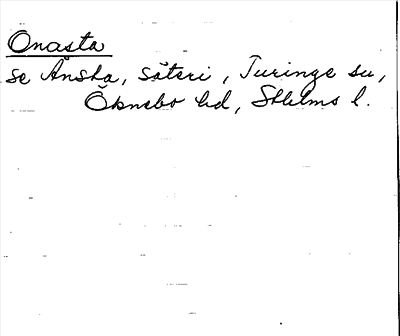 Onåsta
se Ånsta, säteri, Turinge sn,
Öknebo hd, Sthlms l.